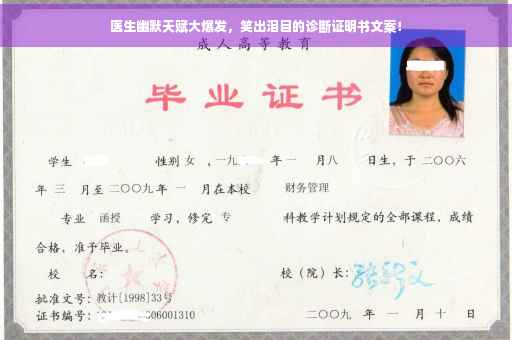 医生幽默天赋大爆发，笑出泪目的诊断证明书文案！
成人高等教育
毕业证书
学生 性别 女 ，一九 年 一 月 八 日生，于 二〇〇六
年 三 月至 二〇〇九 年 一 月在本校 财务管理
专业 函授 学习，修完 专 科教学计划规定的全部课程，成绩
合格，准予毕业。
校 名： 校（院）长：
批准文号：教计[1998]33号
证书编号： 06001310 二〇〇九 年 一 月 十 日